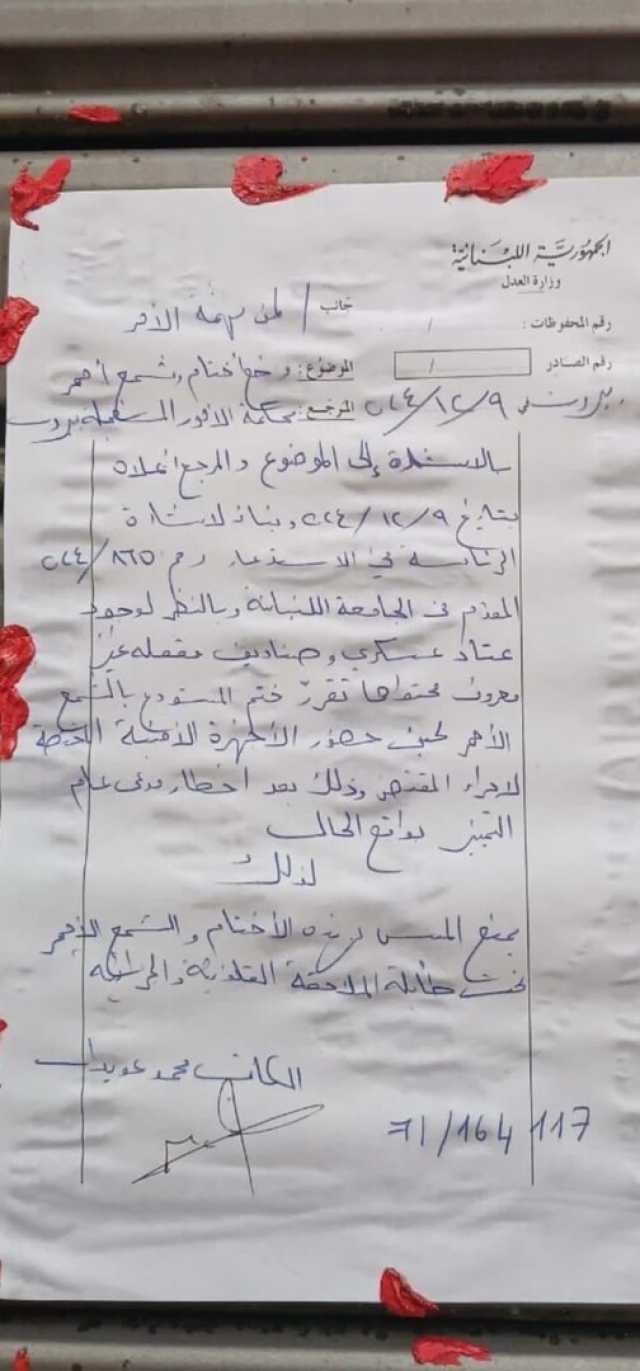 الجمهورية اللبنانية
وزارة العدل
رقم المحفوظات : /
رقم الصادر /
جانب / لمن يهمه الأمر
الموضوع : وضع أختام وشمع أحمر
المرجع : محكمة الأمور المستعجلة بيروت
بيروت في ٩/١٢/٢٠٢٤
بالاستنادة إلى الموضوع والمرجع أعلاه
بتاريخ ٩/١٢/٢٠٢٤ وبناء لاشارة
الرئاسة في الاستدعاء رقم ٨٦٥/٢٠٢٤
المقدم من الجامعة اللبنانية وبالنظر لوجود
عتاد عسكري وصناديق مقفلة غير
معروف محتواها تقرر ختم المستودع بالشمع
الأحمر لحين حضور الأجهزة الأمنية المختصة
لاجراء المقتضى وذلك بعد اخطار مدعي عام
التمييز بواقع الحال
لذلك
يمنع المس بهذه الأختام والشمع الأحمر
تحت طائلة الملاحقة القانونية والجزائية
الكاتب محمد عويدات
71/164 117